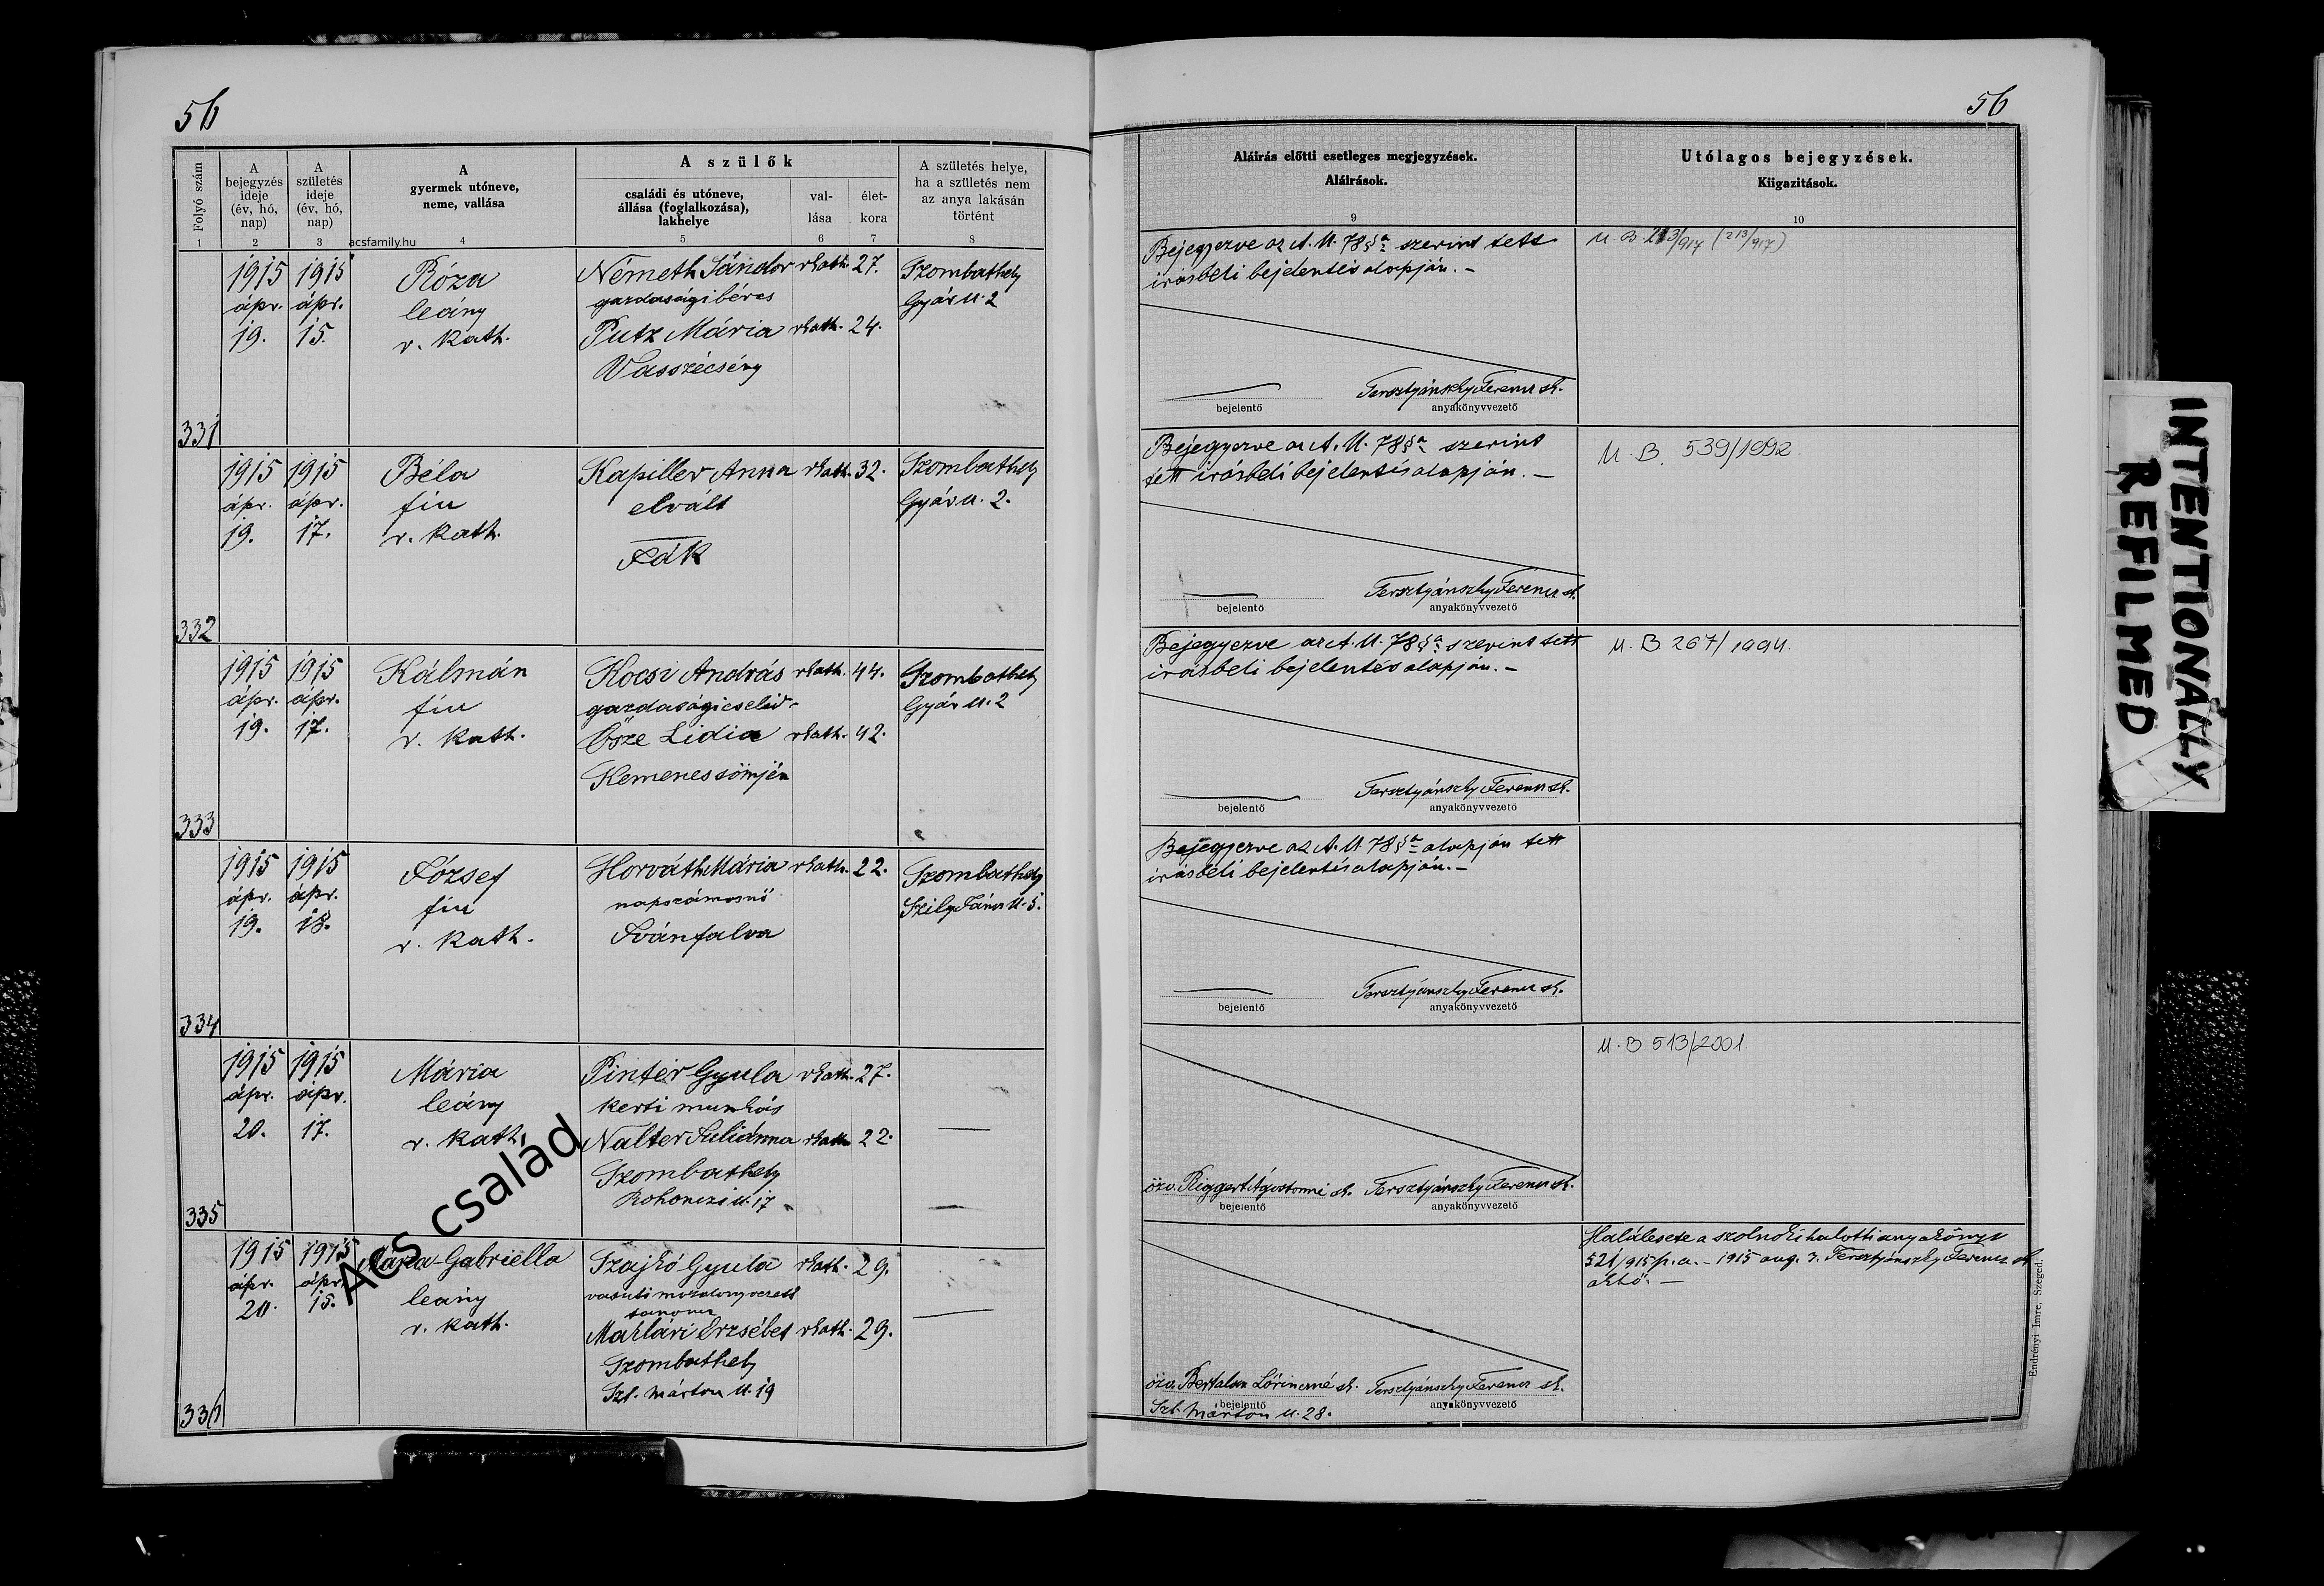 56
Folyó szám
A bejegyzés ideje (év, hó, nap)
A születés ideje (év, hó, nap)
A gyermek utóneve, neme, vallása
A szülők
családi és utóneve, állása (foglalkozása), lakhelye
val-
lása
élet-
kora
A születés helye, ha a születés nem az anya lakásán történt
1 2 3 4 5 6 7 8
acsfamily.hu
331
1915 ápr. 19.
1915 ápr. 15.
Róza
leány
r. kath.
Németh Sándor rkath. 27.
gazdasági béres
Putz Mária rkath. 24.
Vasszécsény
Szombathely
Gyár u. 2
332
1915 ápr. 19.
1915 ápr. 17.
Béla
fiu
r. kath.
Kapiller Anna rkath. 32.
elvált
Ják
Szombathely
Gyár u. 2.
333
1915 ápr. 19.
1915 ápr. 17.
Kálmán
fiu
r. kath.
Kocsi András rkath. 44.
gazdasági cseléd
Ősze Lidia rkath. 42.
Kemenessömjén
Szombathely
Gyár u. 2
334
1915 ápr. 19.
1915 ápr. 18.
József
fiu
r. kath.
Horváth Mária rkath. 22.
napszámosnő
Ivánfalva
Szombathely
Szily János u. 5.
335
1915 ápr. 20.
1915 ápr. 17.
Mária
leány
r. kath.
Pintér Gyula rkath. 27.
kerti munkás
Nalter Juliánna rkath 22.
Szombathely
Rohonczi u. 17
336
1915 ápr. 20.
1915 ápr. 15.
Mária-Gabriella
leány
r. kath.
Szajkó Gyula rkath. 29.
vasuti mozdonyvezető
tanoncz
Maklári Erzsébet rkath. 29.
Szombathely
Szt. Márton u. 19
Acs család
56
Aláírás előtti esetleges megjegyzések.
Aláirások.
9
Utólagos bejegyzések.
Kiigazitások.
10
Bejegyezve az A. U. 78 §a szerint tett
irásbeli bejelentés alapján. –
bejelentő
Tersztyánszky Ferencz sk.
anyakönyvvezető
U. B. 213/917 (213/917)
Bejegyezve az A. U. 78 §a szerint
tett irásbeli bejelentés alapján. –
bejelentő
Tersztyánszky Ferencz sk.
anyakönyvvezető
U. B. 539/1992.
Bejegyezve az A. U. 78 §a szerint tett
irásbeli bejelentés alapján. –
bejelentő
Tersztyánszky Ferencz sk.
anyakönyvvezető
U. B 267/1994.
Bejegyezve az A. U. 78 §a alapján tett
irásbeli bejelentés alapján. –
bejelentő
Tersztyánszky Ferencz sk.
anyakönyvvezető
U. B 513/2001.
özv. Riggert Ágostonné sk. Tersztyánszky Ferencz sk.
bejelentő
anyakönyvvezető
Halálesete a szolnoki halotti anyakönyv
521/915 f. a. – 1915 aug. 3. Tersztyánszky Ferencz sk
özv. Bertalan Lőrinczné sk. Tersztyánszky Ferencz sk.
bejelentő
anyakönyvvezető
Szt. Márton u. 28.
Endrényi Imre, Szeged.
INTENTIONALLY
REFILMED